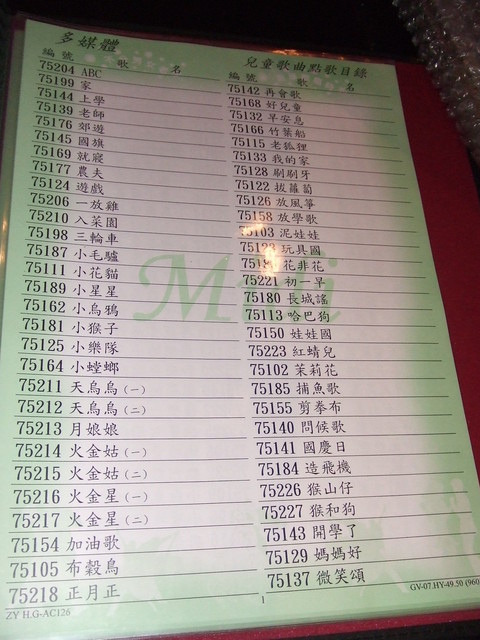 多媒體
兒童歌曲點歌目錄
編號 歌名
75204 ABC
75199 家
75144 上學
75139 老師
75176 郊遊
75145 國旗
75169 就寢
75177 農夫
75124 遊戲
75206 一放雞
75210 入菜園
75198 三輪車
75187 小毛驢
75111 小花貓
75189 小星星
75162 小烏鴉
75181 小猴子
75125 小樂隊
75164 小螳螂
75211 天烏烏(一)
75212 天烏烏(二)
75213 月娘娘
75214 火金姑(一)
75215 火金姑(二)
75216 火金星(一)
75217 火金星(二)
75154 加油歌
75105 布穀鳥
75218 正月正
ZY H.G-AC126
編號 歌名
75142 再會歌
75168 好兒童
75132 早安息
75166 竹葉船
75115 老狐狸
75133 我的家
75128 刷刷牙
75122 拔蘿蔔
75126 放風箏
75158 放學歌
75103 泥娃娃
玩具國
花非花
75221 初一早
75180 長城謠
75113 哈巴狗
75150 娃娃國
75223 紅蜻兒
75102 茉莉花
75185 捕魚歌
75155 剪拳布
75140 問候歌
75141 國慶日
75184 造飛機
75226 猴山仔
75227 猴和狗
75143 開學了
75129 媽媽好
75137 微笑頌
1
GV-07.HY-49.50 (960